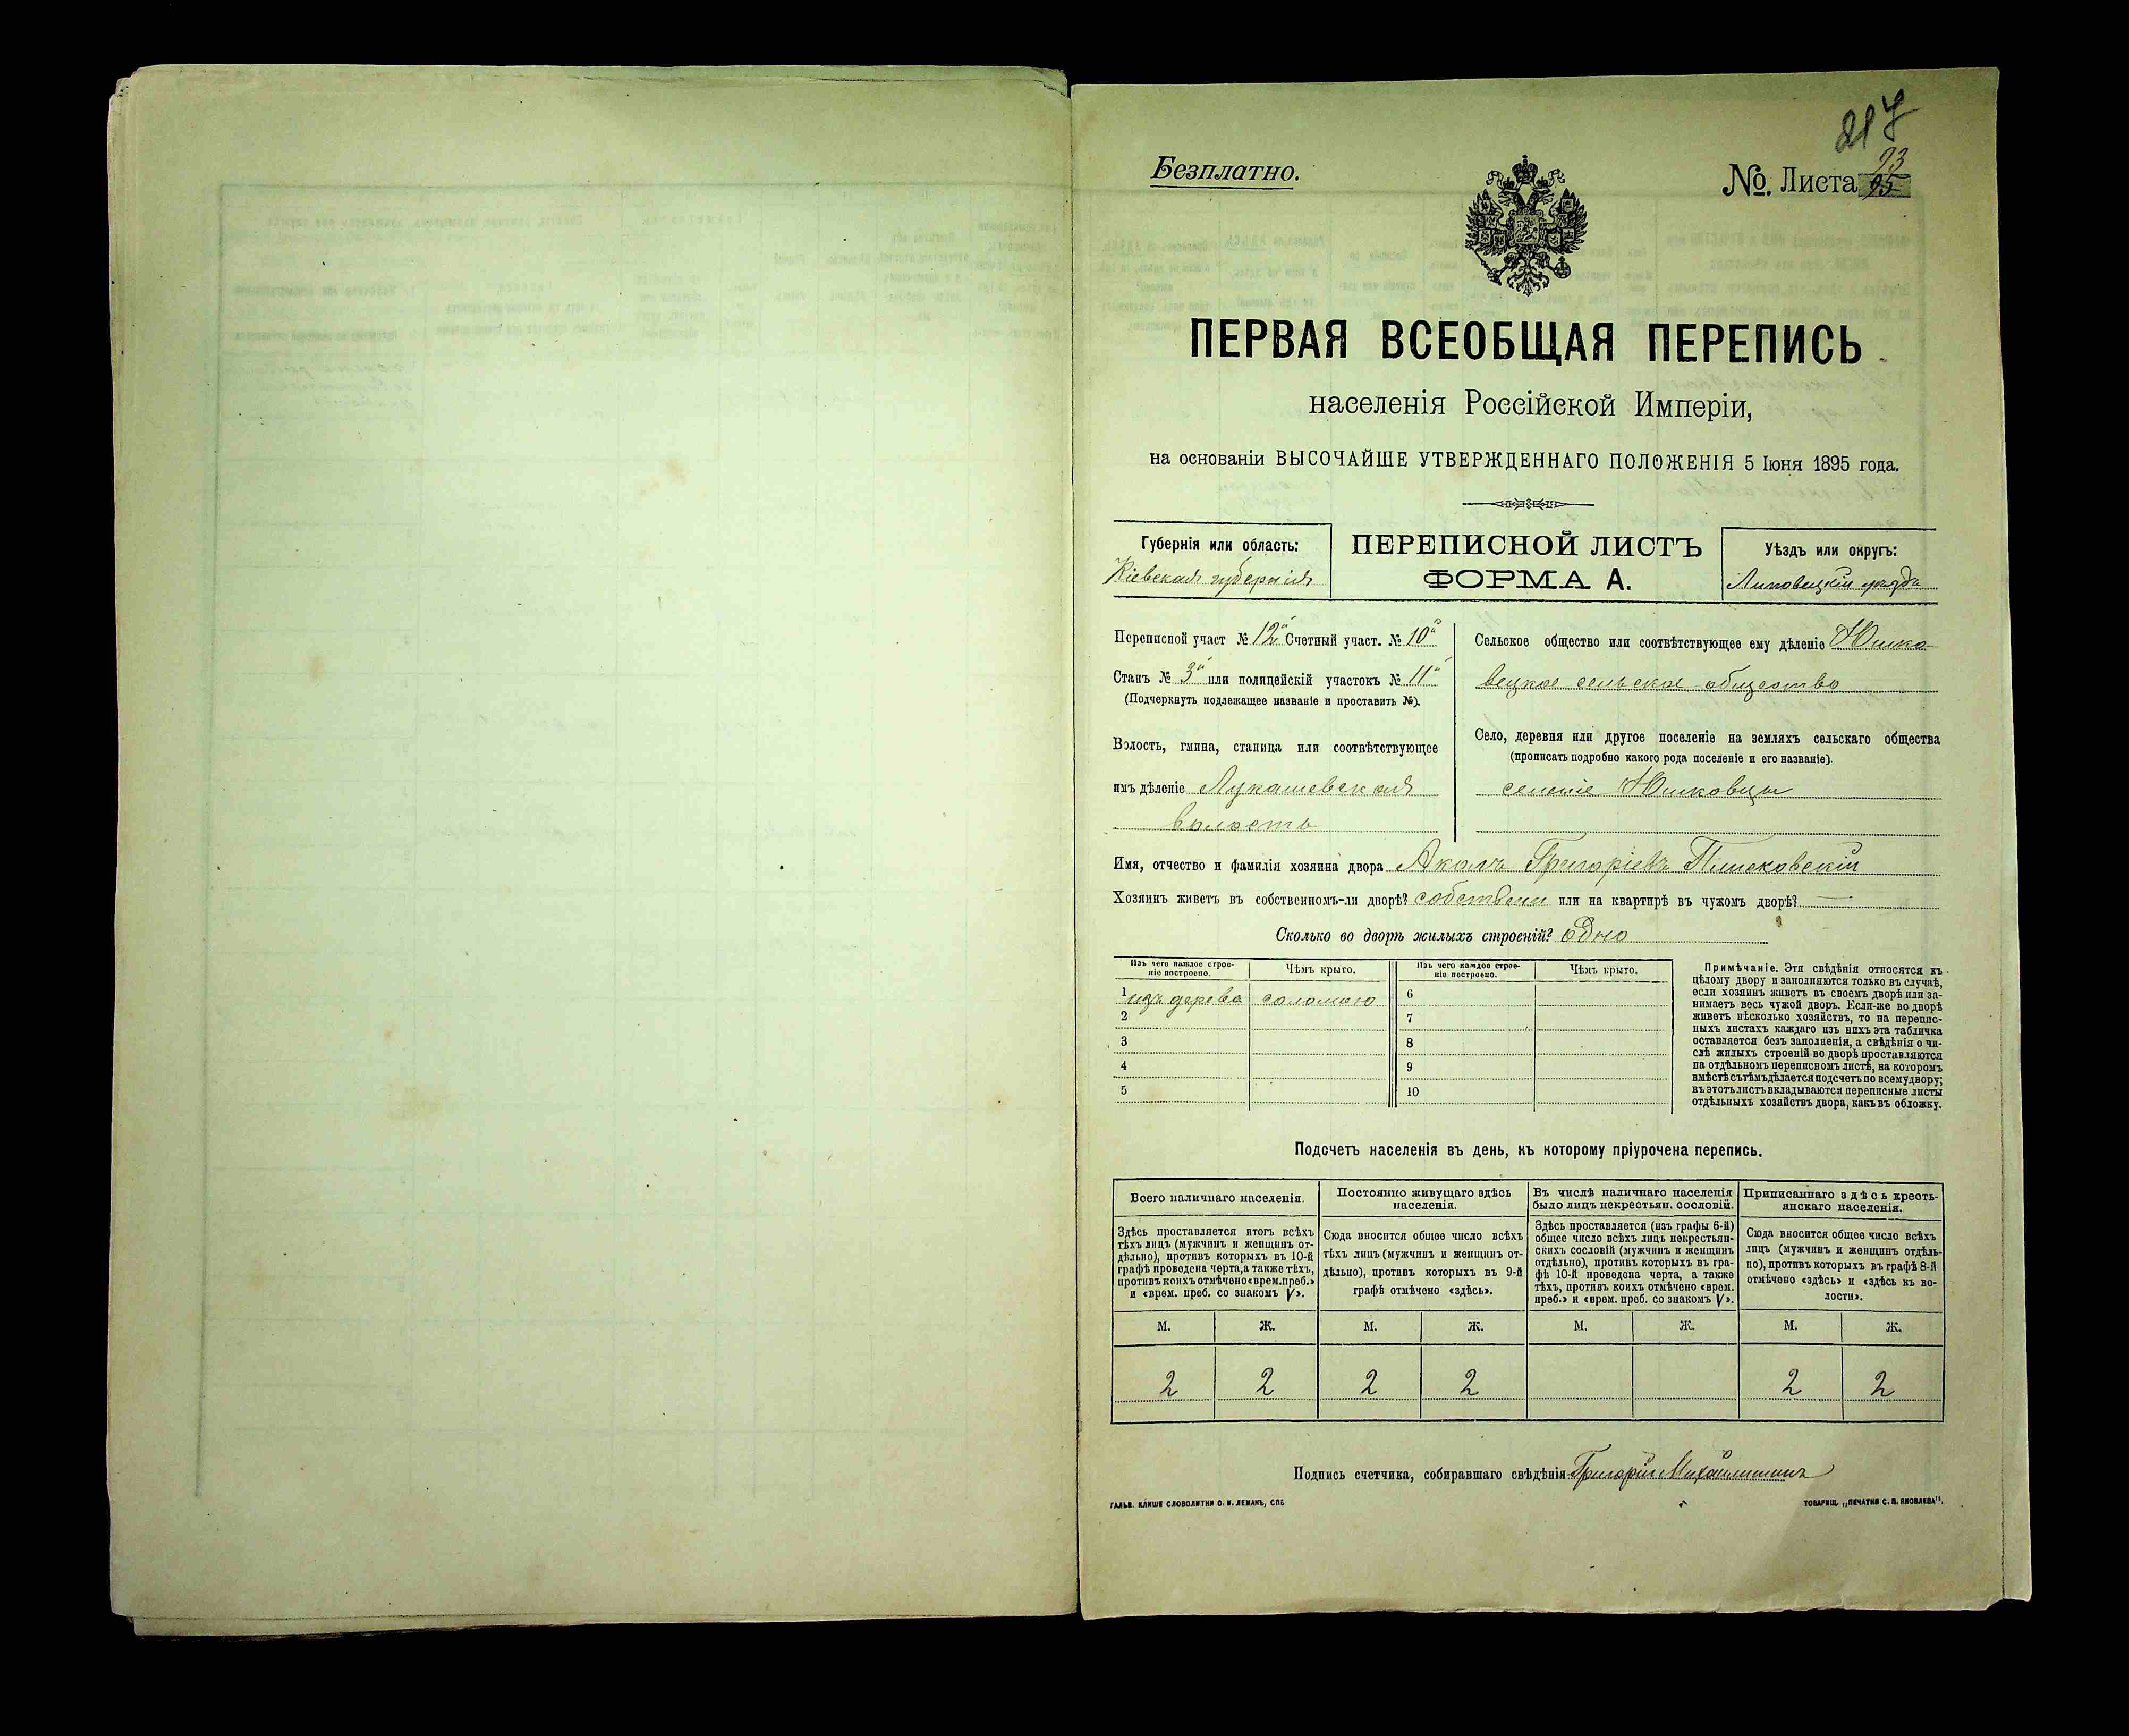 217
Безплатно.
№. Листа 93
95
ПЕРВАЯ ВСЕОБЩАЯ ПЕРЕПИСЬ
населенія Россійской Имперіи,
на основаніи ВЫСОЧАЙШЕ УТВЕРЖДЕННАГО ПОЛОЖЕНІЯ 5 Іюня 1895 года.
Губернія или область:
Кіевская губернія
ПЕРЕПИСНОЙ ЛИСТЪ
ФОРМА А.
Уѣздъ или округъ:
Липовецкій уѣздъ
Переписной участ № 12й Счетный участ. № 10й
Станъ № 3й или полицейскій участокъ № 11й
(Подчеркнуть подлежащее названіе и проставить №).
Волость, гмина, станица или соотвѣтствующее
имъ дѣленіе Лукашевская
волость
Сельское общество или соотвѣтствующее ему дѣленіе Юшко
вецкое сельское общество
Село, деревня или другое поселеніе на земляхъ сельскаго общества
(прописать подробно какого рода поселеніе и его названіе).
селеніе Юшковцы
Имя, отчество и фамилія хозяина двора Григоріевъ Плисковскій
Хозяинъ живетъ въ собственномъ-ли дворѣ? собствен или на квартирѣ въ чужомъ дворѣ? —
Сколько во дворѣ жилыхъ строеній? одно
Изъ чего каждое строе-
ніе построено.
Чѣмъ крыто.
Изъ чего каждое строе-
ніе построено.
Чѣмъ крыто.
1 изъ дерева соломою 6
2 7
3 8
4 9
5 10
Примѣчаніе. Эти свѣдѣнія относятся къ
цѣлому двору и заполняются только въ случаѣ,
если хозяинъ живетъ въ своемъ дворѣ или за-
нимаетъ весь чужой дворъ. Если-же во дворѣ
живетъ нѣсколько хозяйствъ, то на перепис-
ныхъ листахъ каждаго изъ нихъ эта табличка
оставляется безъ заполненія, а свѣдѣнія о чи-
слѣ жилыхъ строеній во дворѣ проставляются
на отдѣльномъ переписномъ листѣ, на которомъ
вмѣстѣ съ тѣмъ дѣлается подсчетъ по всему двору;
въ этотъ листъ вкладываются переписные листы
отдѣльныхъ хозяйствъ двора, какъ въ обложку.
Подсчетъ населенія въ день, къ которому пріурочена перепись.
Всего наличнаго населенія.
Здѣсь проставляется итогъ всѣхъ
тѣхъ лицъ (мужчинъ и женщинъ от-
дѣльно), противъ которыхъ въ 10-й
графѣ проведена черта, а также тѣхъ,
противъ коихъ отмѣчено «врем. преб.»
и «врем. преб. со знакомъ V».
Постоянно живущаго здѣсь
населенія.
Сюда вносится общее число всѣхъ
тѣхъ лицъ (мужчинъ и женщинъ от-
дѣльно), противъ которыхъ въ 9-й
графѣ отмѣчено «здѣсь».
Въ числѣ наличнаго населенія
было лицъ некрестьян. сословій.
Здѣсь проставляется (изъ графы 6-й)
общее число всѣхъ лицъ некрестьян-
скихъ сословій (мужчинъ и женщинъ
отдѣльно), противъ которыхъ въ гра-
фѣ 10-й проведена черта, а также
тѣхъ, противъ коихъ отмѣчено «врем.
преб.» и «врем. преб. со знакомъ V».
Приписаннаго здѣсь кресть-
янскаго населенія.
Сюда вносится общее число всѣхъ
лицъ (мужчинъ и женщинъ отдѣль-
но), противъ которыхъ въ графѣ 8-й
отмѣчено «здѣсь» и «здѣсь къ во-
лости».
М. Ж. М. Ж. М. Ж. М. Ж.
2 2 2 2 2 2
Подпись счетчика, собиравшаго свѣдѣнія Григорій
ГАЛЬВ. КЛИШЕ СЛОВОЛИТНИ О. И. ЛЕМАНЪ, СПБ
ТОВАРИЩ. „ПЕЧАТНЯ С. П. ЯКОВЛЕВА".